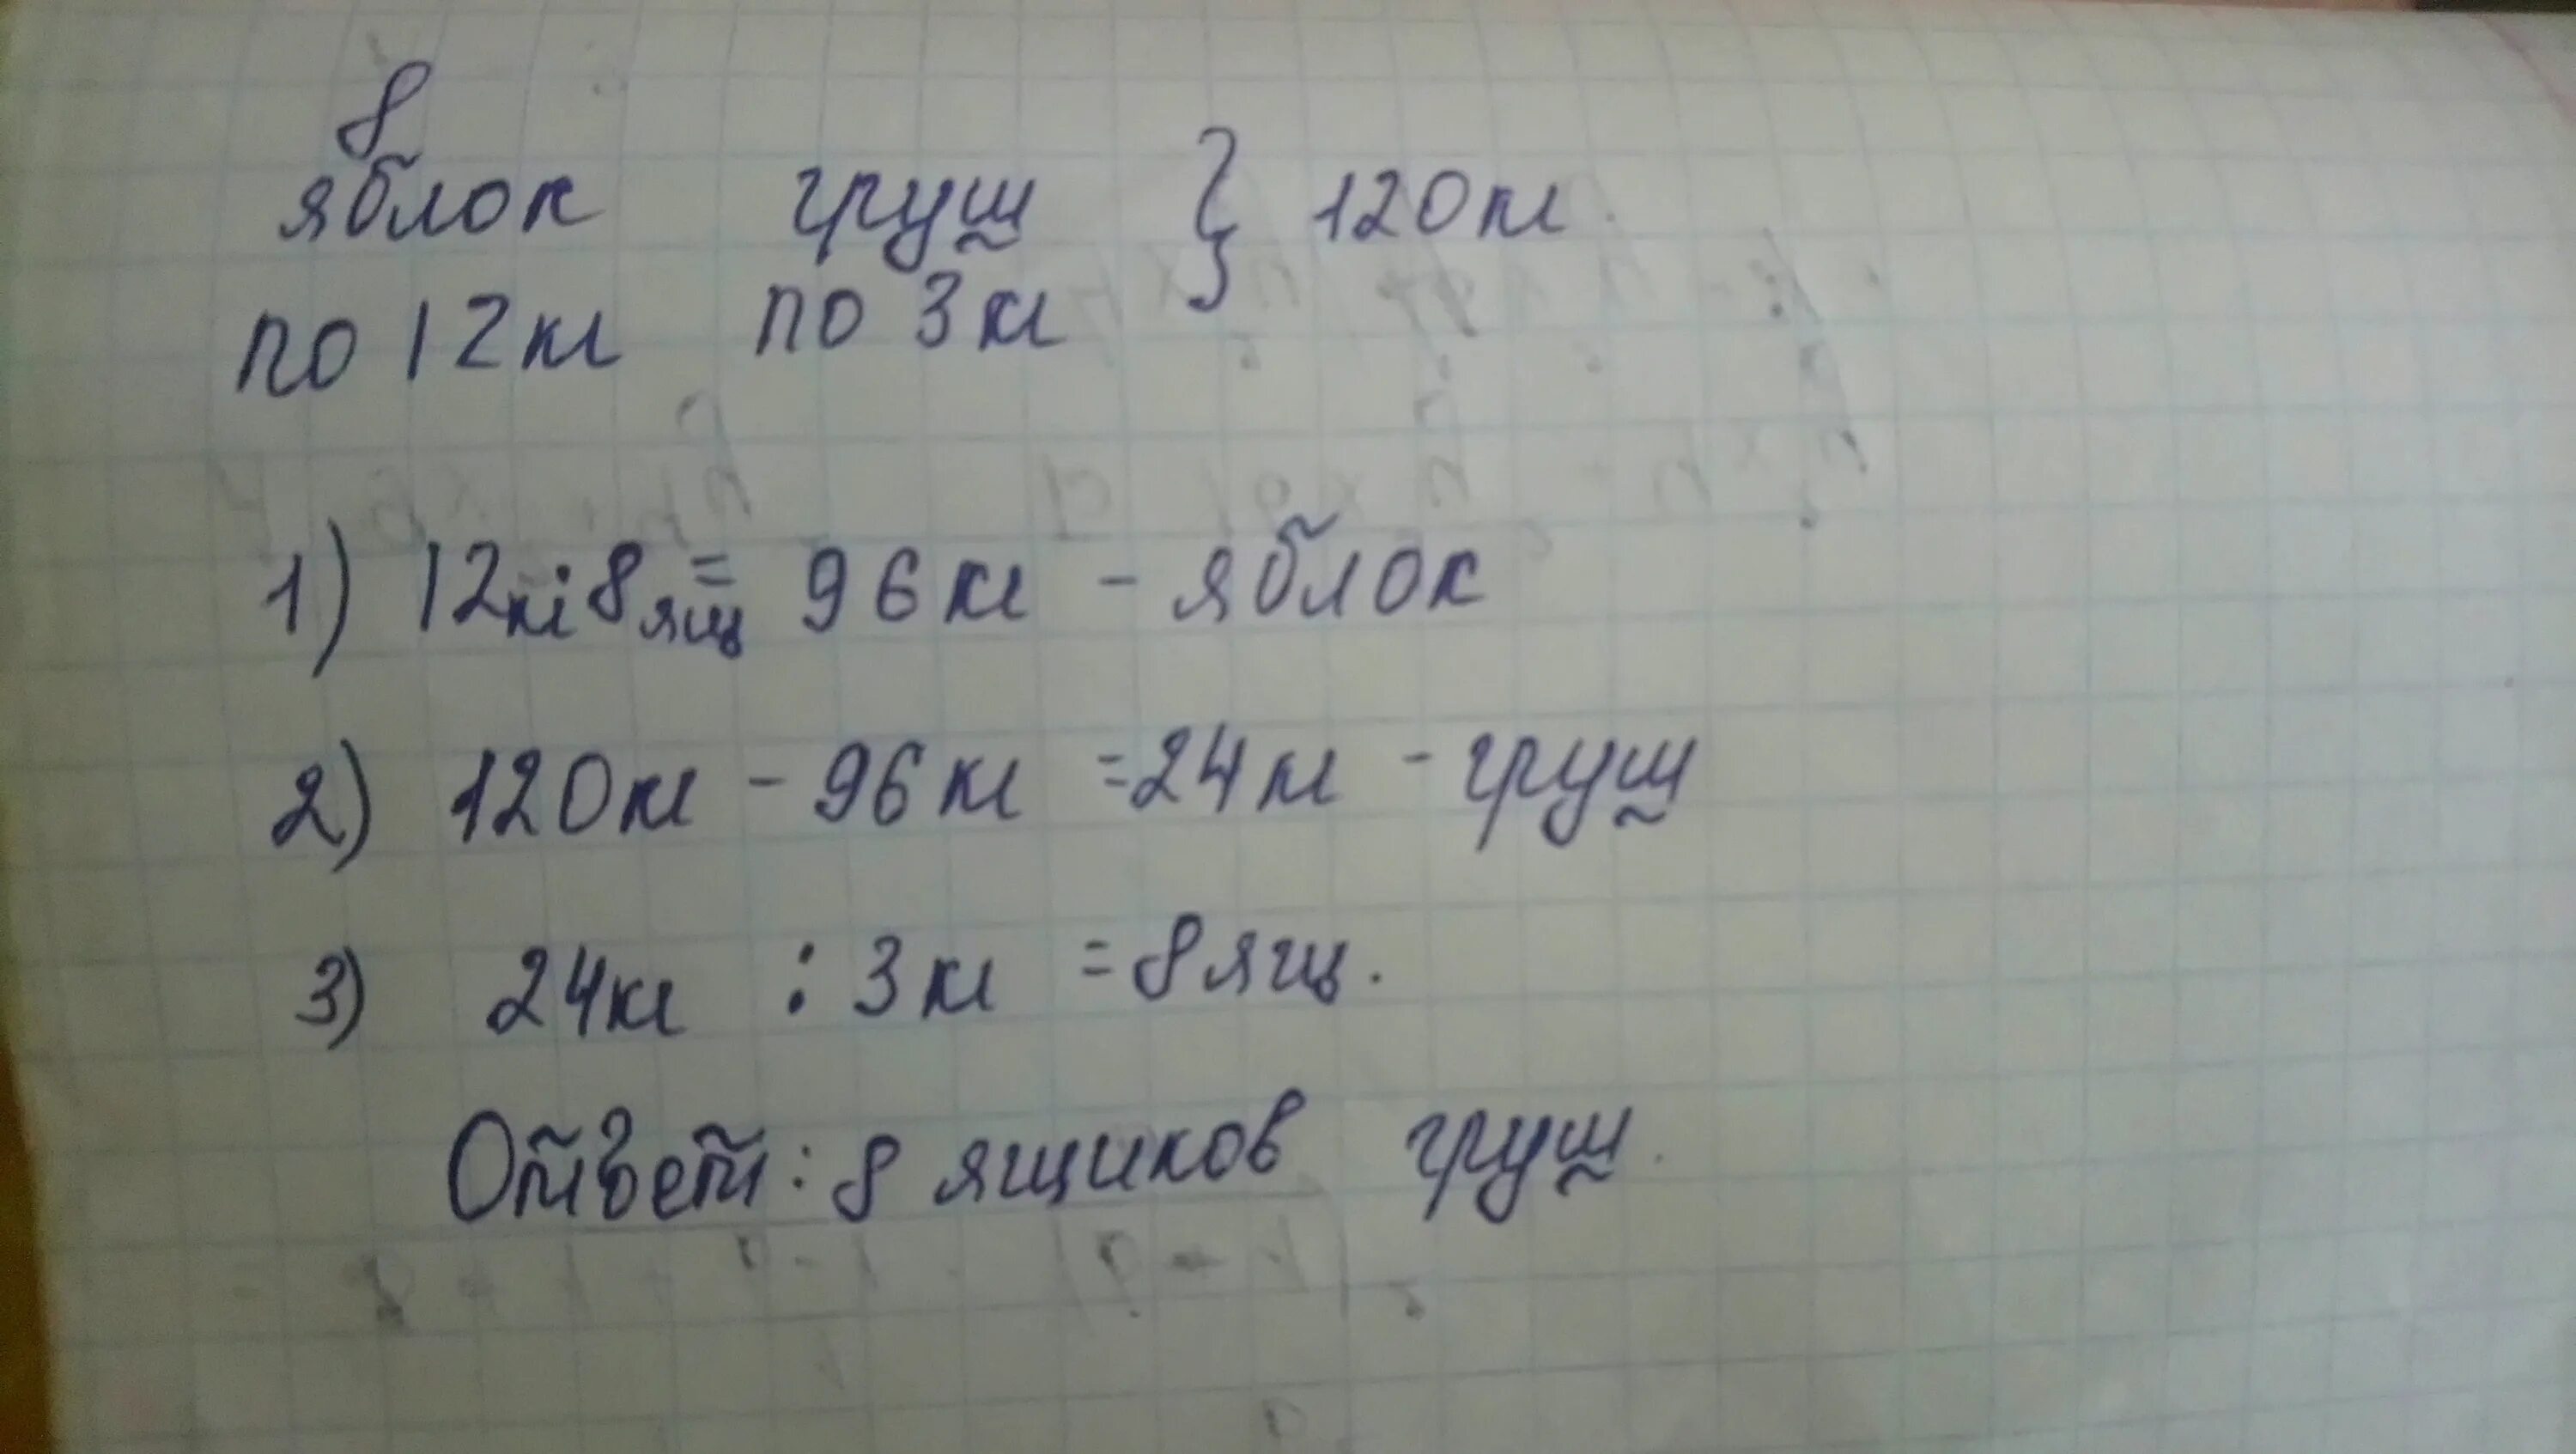 8
яблок груш } 120 кг.
по 12 кг по 3 кг
1) 12кг·8ящ = 96 кг - яблок
2) 120 кг - 96 кг = 24 кг - груш
3) 24 кг : 3 кг = 8 ящ.
Ответ: 8 ящиков груш.